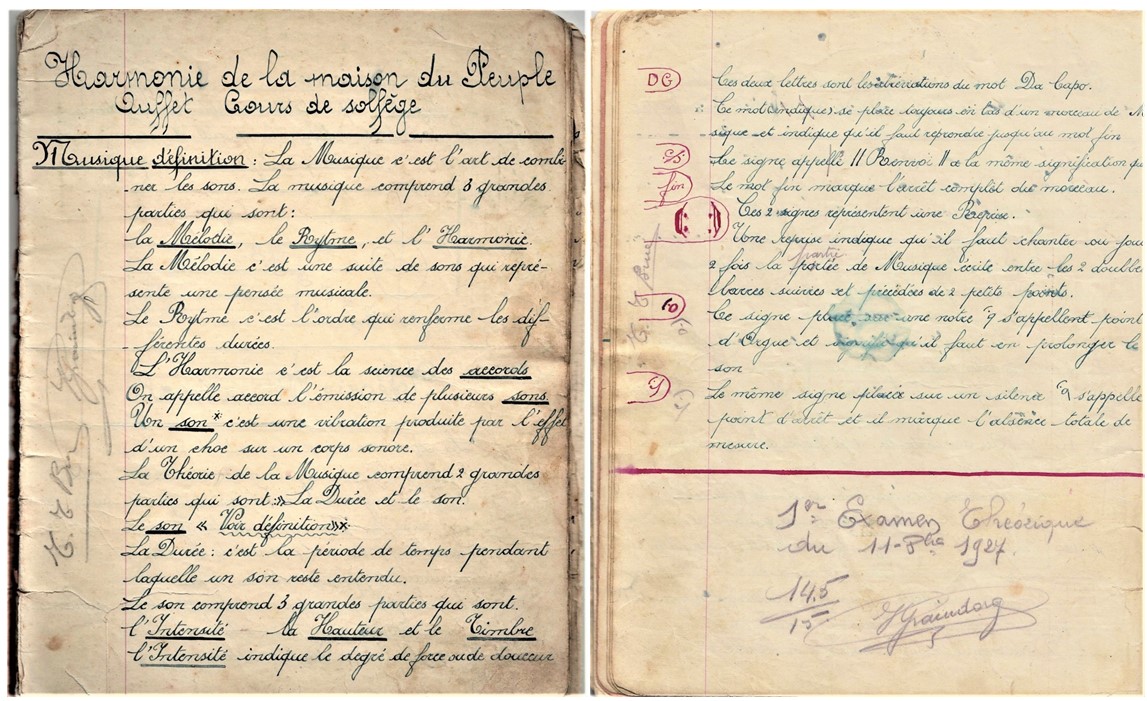 Harmonie de la maison du Peuple
Ouffet Cours de solfège
Musique définition : La Musique c'est l'art de combi-
ner les sons. La musique comprend 3 grandes
parties qui sont :
la Mélodie, le Rytme, et l'Harmonie.
La Mélodie c'est une suite de sons qui repré-
sente une pensée musicale.
Le Rytme c'est l'ordre qui renferme les dif-
férentes durées.
L'Harmonie c'est la science des accords
On appelle accord l'émission de plusieurs sons.
Un son * c'est une vibration produite par l'effet
d'un choc sur un corps sonore.
La Théorie de la Musique comprend 2 grandes
parties qui sont : La Durée et le son.
Le son « Voir définition » *
La Durée : c'est la période de temps pendant
laquelle un son reste entendu.
Le son comprend 3 grandes parties qui sont.
l'Intensité la Hauteur et le Timbre
l'Intensité indique le degré de force ou de douceur
T. B
JGraindorg
DC Ces deux lettres sont les abréviations du mot Da Capo.
Ce mot (indique) se place toujours en bas d'un morceau de M
sique et indique qu'il faut reprendre jusqu'au mot fin
Le signe appellé " Renvoi " a la même signification qu
fin Le mot fin marque l'arrêt complèt du morceau.
Ces 2 signes représentent une Reprise.
Une reprise indique qu'il faut chanter ou joue
partie
2 fois la portée de Musique écrite entre les 2 double
barres suivies et précédées de 2 petits points.
Ce signe placé sur une note s'appellent point
d'Orgue et signifie qu'il faut en prolonger le
son
Le même signe placée sur un silence s'appelle
point d'arrêt et il marque l'absence totale de
mesure.
1er Examen Théorique
du 11-8bre 1927.
14,5
15
JGraindorg